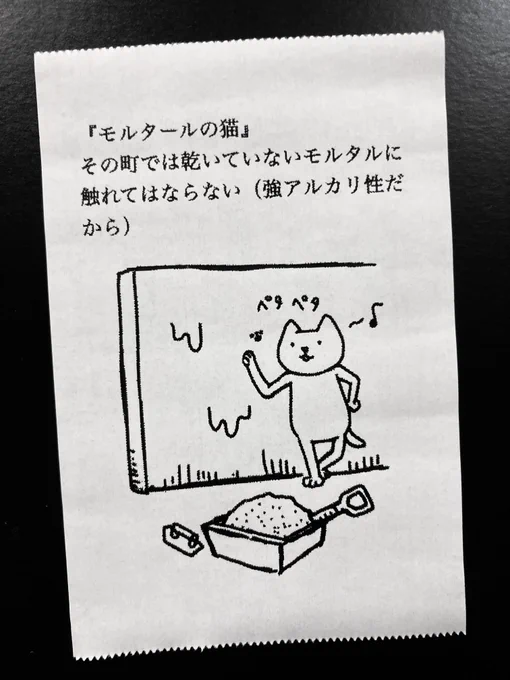 『モルタールの猫』
その町では乾いていないモルタルに
触れてはならない（強アルカリ性だ
から）
ペタ ペタ